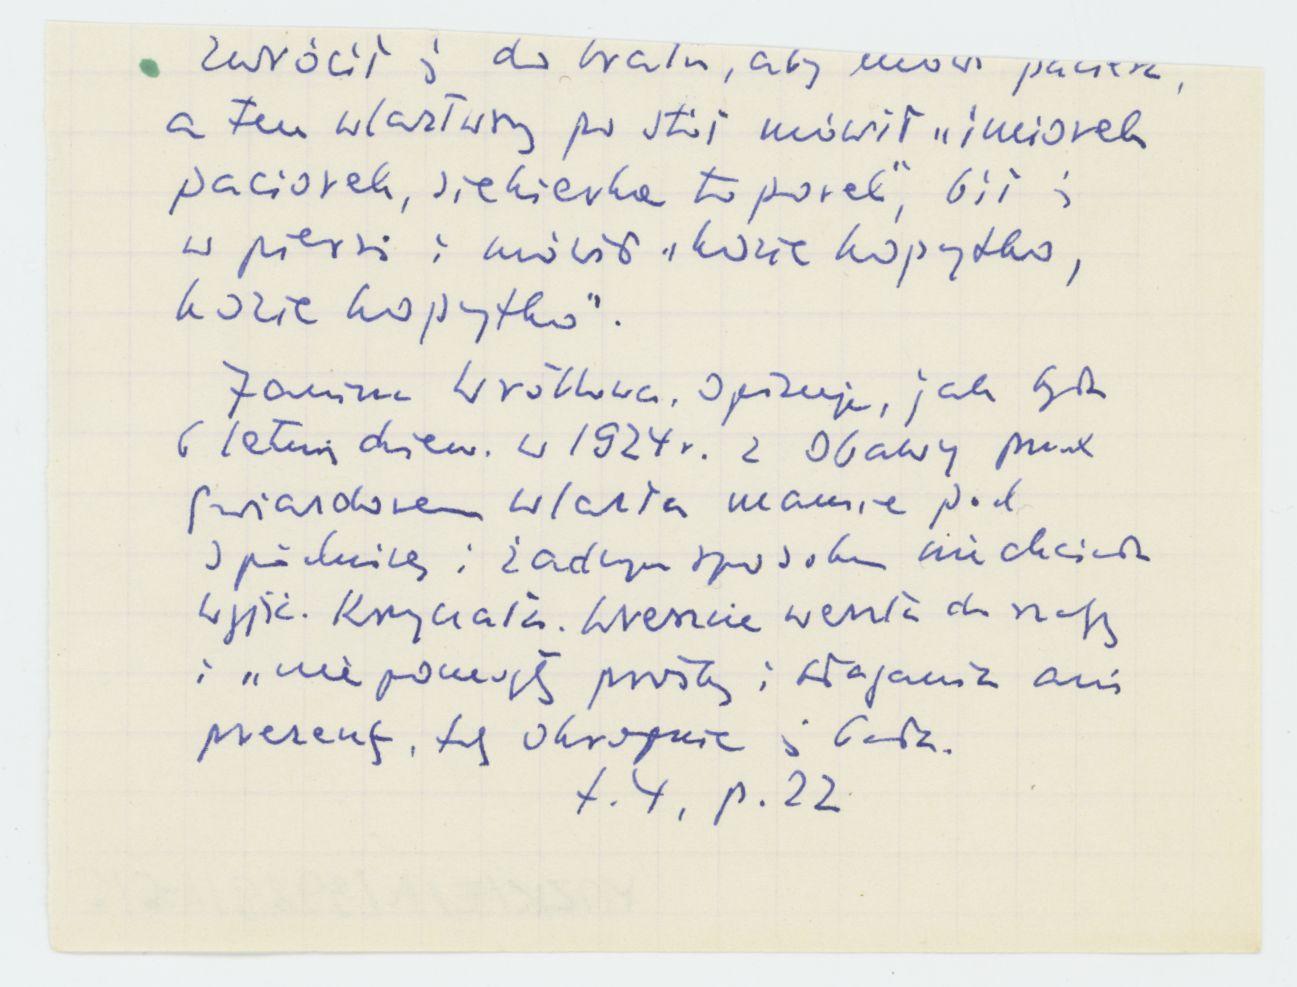 zwrócił ś do brata, aby mówi pacierz,
a ten wlazłwszy po stół mówił „imiorek
paciorek, siekierka toporek", bił ś
w piersi i mówił „kozie kopytko,
kozie kopytko".
Janina Wróblowa. Opisuje, jak była
6 letnią dziew. w 1924 r. z obawy przed
gwiazdorem wlazła mamie pod
spódnicę i żadnym sposobem nie chciała
wyjść. Krzyczała. Wreszcie weszła do szafy
i „nie pomogły prośby i błagania ani
prezenty, tę okropnie ś bała.
t. 4, p. 22